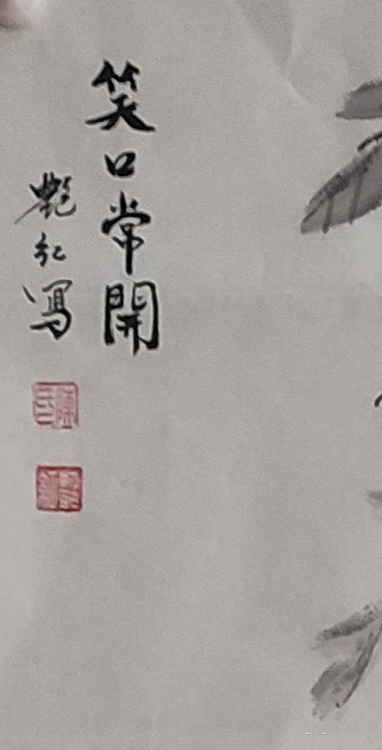 笑口常開
艷紅寫